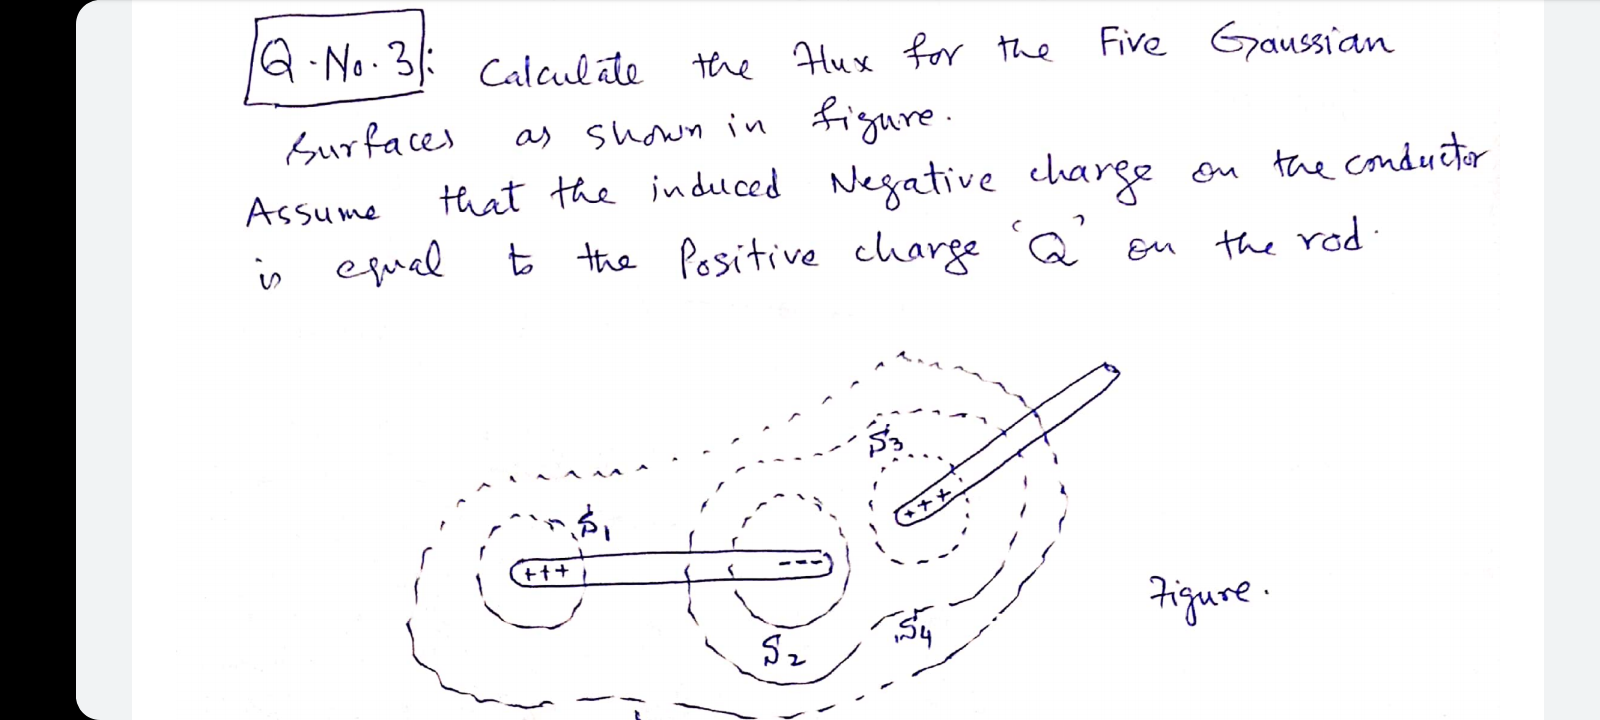 Q.No.3: Calculate the flux for the Five Gaussian
surfaces as shown in figure.
Assume that the induced Negative charge on the conductor
is equal to the Positive charge 'Q' on the rod.
S3
+++
S1
+++
---
S4
S2
Figure.